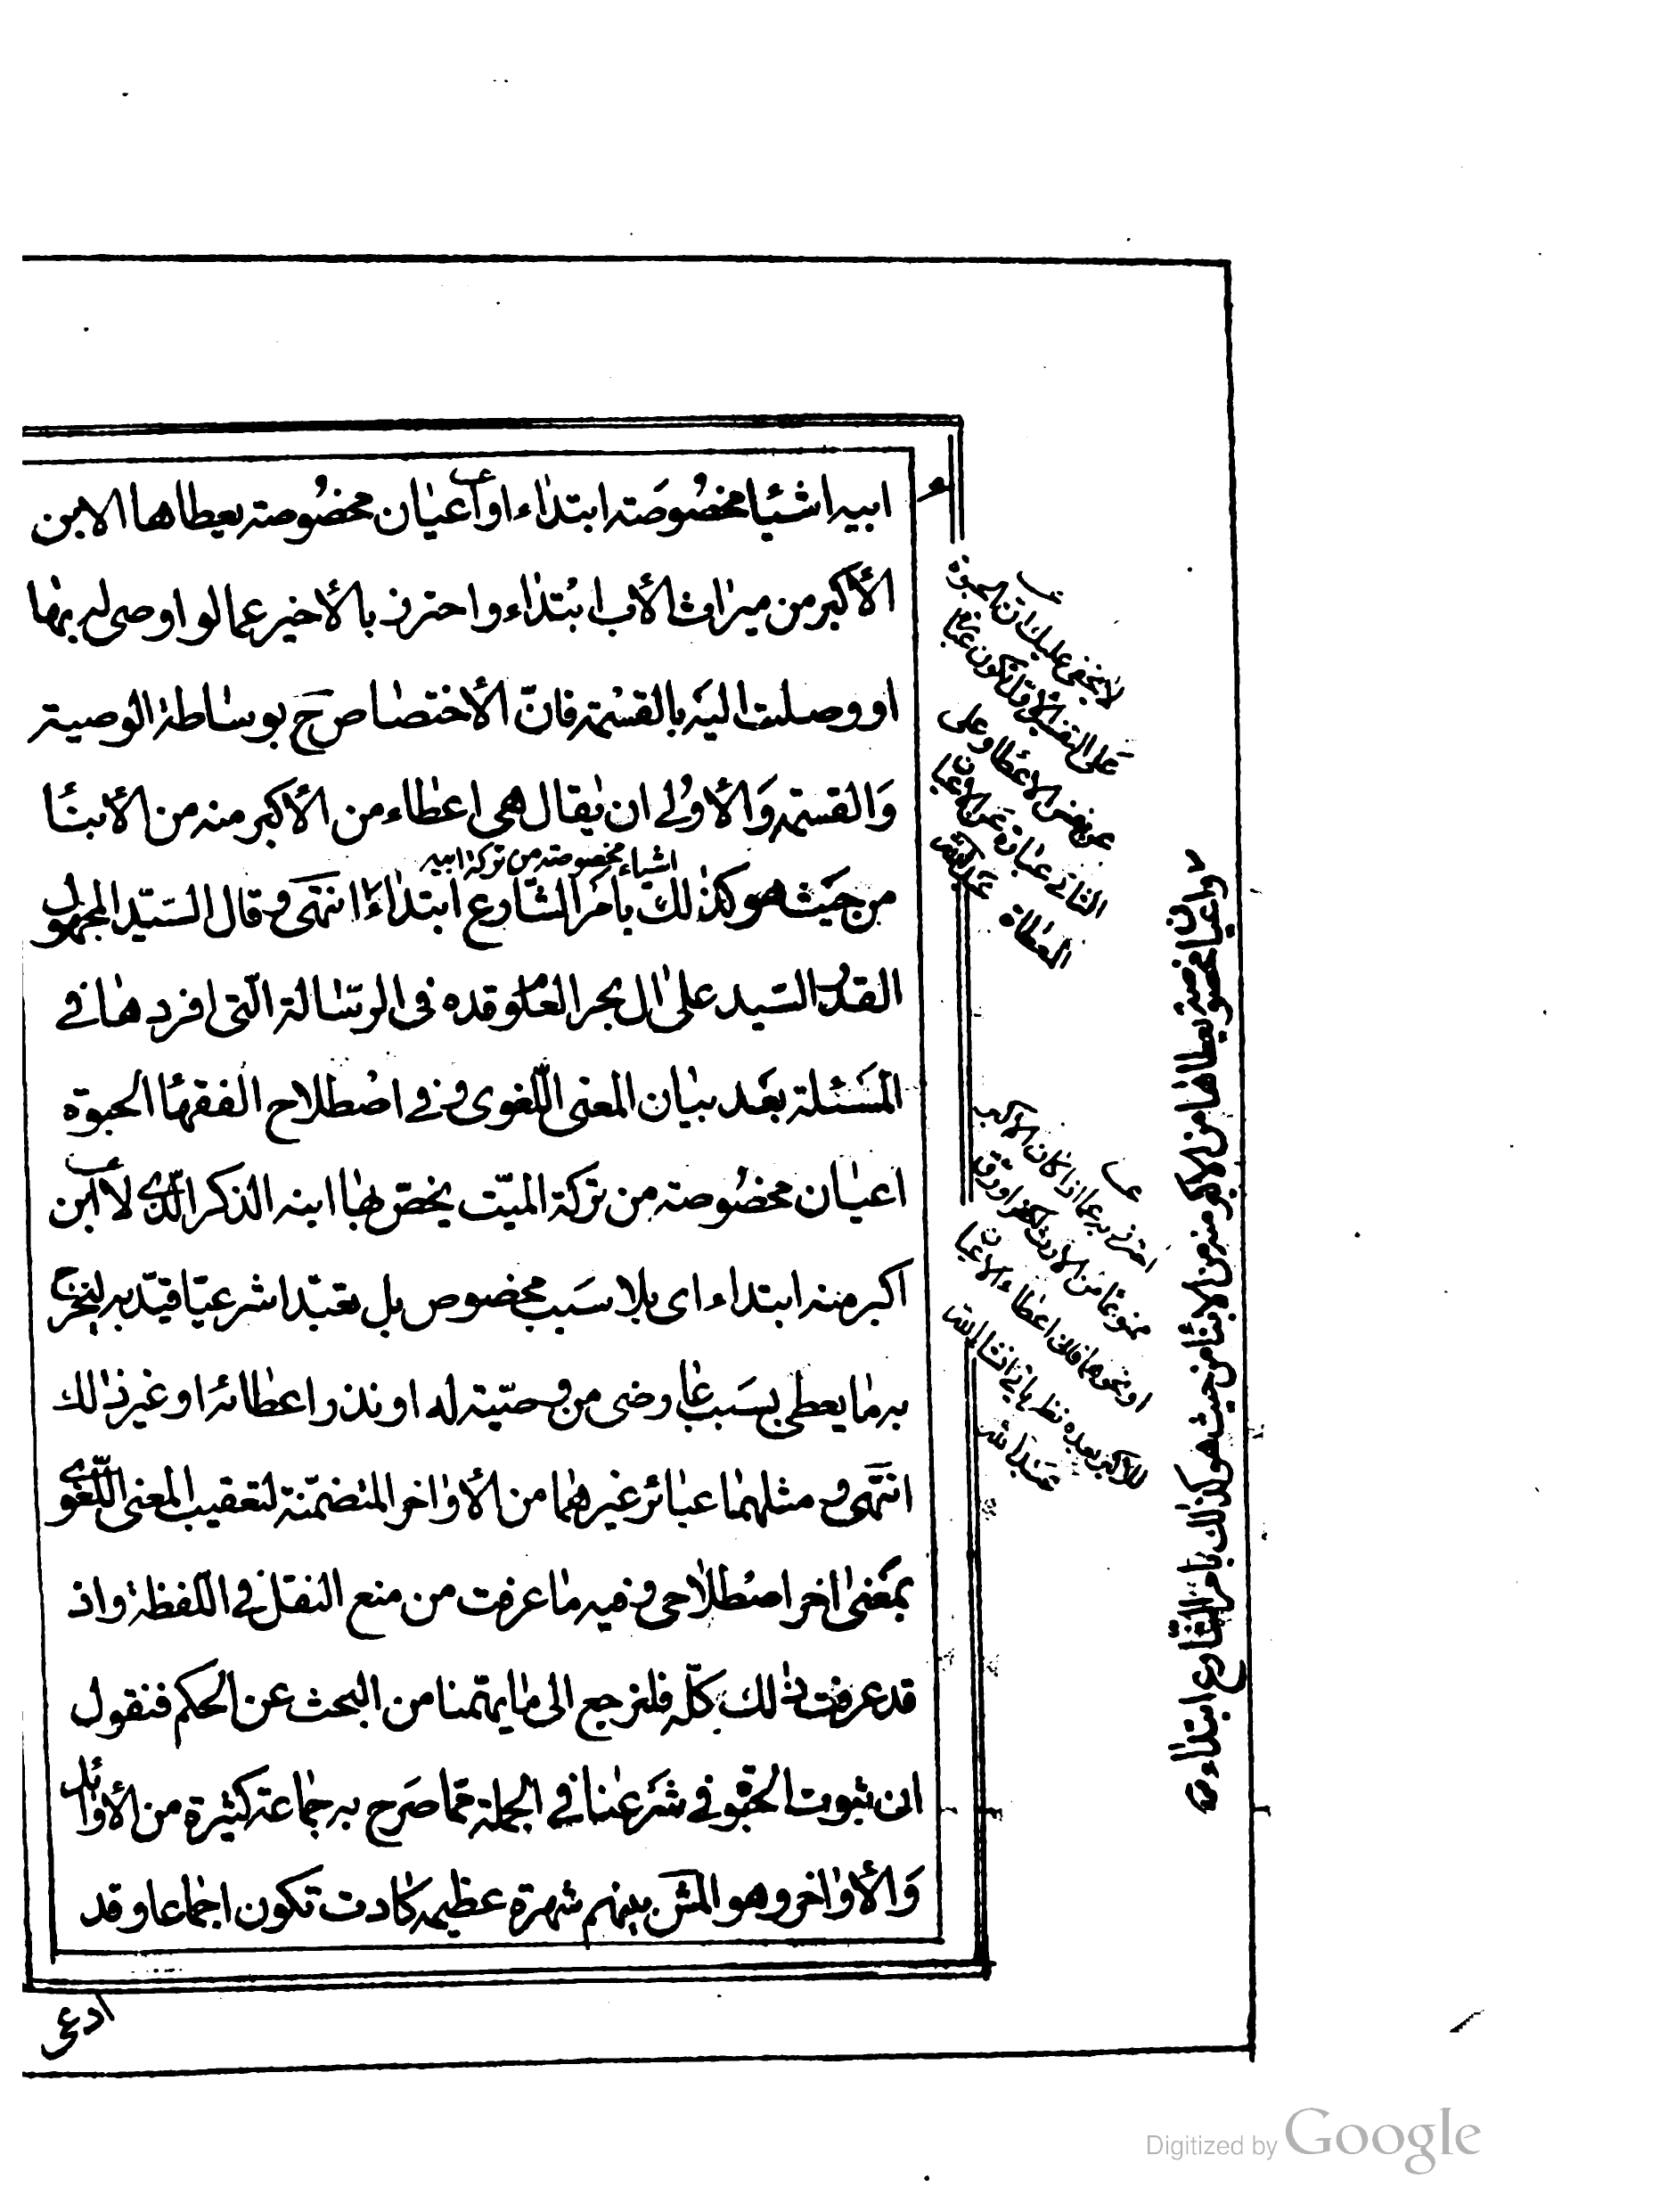 ابيه اشئيا مخصُوصَته ابتدٰاء او اَعيٰان مخصُوصته يعطاها الابن
الأكبر من ميرٰاث الأب ابُتدٰاء واحترز بالأخير عمالو اوصى له بهٰا
او وصلت اليَه بالقسُمة فانّ الأختصٰاص حَ بوسٰاطة الوصية
وَالقستمة وَالأوُلى ان يٰقال هى اعطٰاء من الأكبر منه من الأبنٰا
اشياء مخصوصته من تركة ابيه
من حَيَث هو كذٰلك بامَر الشّارع ابتدٰاءً انتهَى وقال السّيّد المجهول
القدُر السّيد على ال بحر العلوم قده فى الرسّالة الّتى افردهٰا فے
المسَئلة بعَد بيٰان المعنى اللّغوى وفے اصُطلاح الفقهٰا الحبوة
اعيٰان مخصُوصته من تركة الميّت يخصّ بهٰا ابنه الذكر الّذى لا ابن
اكبر منه ابتداء اى بلا سَبب مخصوص بل تعبّدا شرعيّا قيّد به ليخرج
به مٰا يعطى بسَبب عٰارضى من وصّيته له او نذر اعطٰائه او غير ذٰلك
انتهَى ومثلهمٰا عبٰائر غيرهمٰا من الأوٰاخر المتضمّنة لتعقيب المعنى اللّغوى
بمَعنىٰ اٰخر اصُطلٰاحى وفيه مٰا عرفت من منع النقل فے اللفظة واذ
قد عرفت ذٰلك كلّه فلنرجع الى مٰا يهمّنا من البحث عن الحكم فنقول
ان ثبوت الحبوة فى شَرعنٰا فے الجملة ممّا صَرح به جمٰاعة كثيرة من الأوٰائل
وَالأوٰاخر وهو المش بينهم شهرة عظيمه كٰادت تكون اجمٰاعا وقد
ادعى
لا يخفى عليك ان الحبوة
على التفسير الاول تكون عبارة
عن نفس الاعطٰا وعلى
الثانى عبٰارة عن الاعيان
المعطاة
احترز به عما اذا كان الاكبر
ممنوعًا من الارث لكفر او رق
او نحوهما فان اعطاء الاعيان
للاكبر بعده
واعيٰان مخصوصته يعطاهٰا من الأكبر منه من الابنٰا من حيث هو كذٰلك بامر الشّارع ابتدٰاء